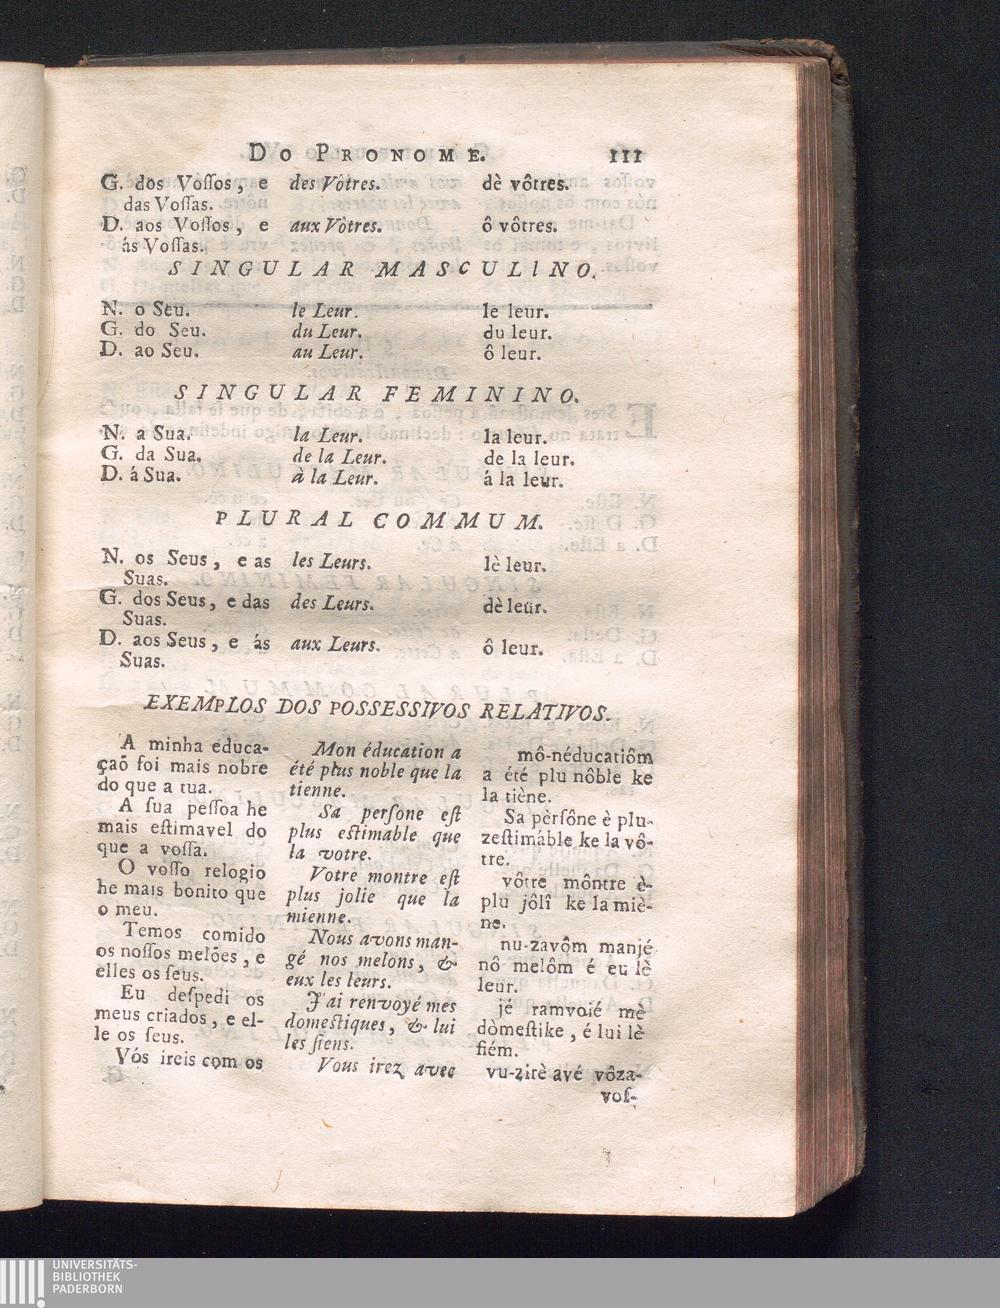 DO PRONOME. 111
G. dos Voſſos, e des Vôtres. dè vôtres.
das Voſſas.
D. aos Voſſos, e aux Vôtres. ô vôtres.
ás Voſſas.
SINGULAR MASCULINO.
N. o Seu. le Leur. le leur.
G. do Seu. du Leur. du leur.
D. ao Seu. au Leur. ô leur.
SINGULAR FEMININO.
N. a Sua. la Leur. la leur.
G. da Sua. de la Leur. de la leur.
D. á Sua. à la Leur. á la leur.
PLURAL COMMUM.
N. os Seus, e as les Leurs. lè leur.
Suas.
G. dos Seus, e das des Leurs. dè leur.
Suas.
D. aos Seus, e ás aux Leurs. ô leur.
Suas.
EXEMPLOS DOS POSSESSIVOS RELATIVOS.
A minha educa-
çaõ foi mais nobre
do que a tua.
A ſua peſſoa he
mais eſtimavel do
que a voſſa.
O voſſo relogio
he mais bonito que
o meu.
Temos comido
os noſſos melões, e
elles os ſeus.
Eu deſpedi os
meus criados, e el-
le os ſeus.
Vós ireis com os
Mon éducation a
été plus noble que la
tienne.
Sa perſone eſt
plus eſtimable que
la votre.
Votre montre eſt
plus jolie que la
mienne.
Nous avons man-
gé nos melons, &
eux les leurs.
J'ai renvoyé mes
domeſtiques, & lui
les ſiens.
Vous irez avec
mô-néducatiôm
a été plu nôble ke
la tiène.
Sa pèrſône è plu-
zeſtimáble ke la vô-
tre.
vôtre môntre è-
plu jôlî ke la miè-
ne.
nu-zavôm manjé
nô melôm é eu lè
leur.
jé ramvoié mè
dòmeſtike, é lui lè
ſiém.
vu-zirè avé vôza-
voſ-
UNIVERSITÄTS-
BIBLIOTHEK
PADERBORN